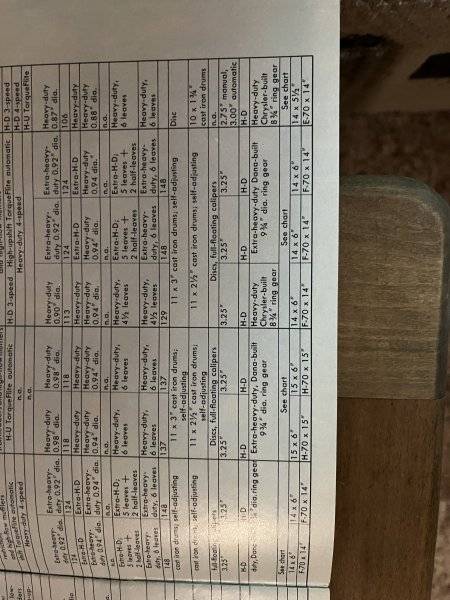 mufflers
and high-
automatic
and high-
Heavy-duty 4-speed
H-U TorqueFlite automatic
n.a.
n.a.
H-D 3-speed
High-upshift TorqueFlite automatic
Heavy-duty 4-speed
H-D 3-speed
H-D 4-speed
H-U TorqueFlite
Extra-heavy-
duty 0.92" dia.
Extra-heavy-
duty 0.92" dia.
Heavy-duty
0.98" dia.
Heavy-duty
0.98" dia.
Heavy-duty
0.90" dia.
Extra-heavy-
duty 0.92" dia.
Extra-heavy-
duty 0.92" dia.
Heavy-duty
0.87" dia.
124 124 118 118 113 124 124 106
Extra-H-D Extra-H-D Heavy-duty Heavy-duty Heavy-duty Extra-H-D Extra-H-D Heavy-duty
Extra-heavy-
duty 0.94" dia.
Heavy-duty
0.94" dia.
Heavy-duty
0.94" dia.
Heavy-duty
0.94" dia.
Heavy-duty
0.94" dia.
Heavy-duty
0.94 dia."
Heavy-duty
0.88" dia.
n.a. n.a. n.a. n.a. n.a. n.a. n.a. n.a.
Extra-H-D;
5 leaves +
2 half-leaves
Extra-H-D;
5 leaves +
2 half-leaves
Heavy-duty,
6 leaves
Heavy-duty,
6 leaves
Heavy-duty,
4½ leaves
Extra-H-D;
5 leaves +
2 half-leaves
Extra-H-D;
5 leaves +
2 half-leaves
Heavy-duty,
6 leaves
Extra-heavy-
duty, 6 leaves
Extra-heavy-
duty, 6 leaves
Heavy-duty,
6 leaves
Heavy-duty,
6 leaves
Heavy-duty,
4½ leaves
Extra-heavy-
duty, 6 leaves
Extra-heavy-
duty, 6 leaves
Heavy-duty,
6 leaves
148 148 137 137 129 148 148
cast iron drums; self-adjusting
11 x 3" cast iron drums;
self-adjusting
11 x 3" cast iron drums; self-adjusting
Disc
cast iron drums; self-adjusting
11 x 2½" cast iron drums;
self-adjusting
11 x 2½" cast iron drums; self-adjusting
10 x 1¾"
cast iron drums
full-floating
Discs, full-floating calipers
Discs, full-floating calipers
n.a.
3.25" 3.25" 3.23" 3.25" 3.25" 3.25" 3.25"
2.75" manual,
3.00" automatic
H-D H-D H-D H-D H-D H-D H-D H-D
dia. ring gear
Extra-heavy-duty, Dana-built
9¾" dia. ring gear
Heavy-duty
Chrysler-built
8¾" ring gear
Extra-heavy-duty Dana-built
9¾" dia. ring gear
Heavy-duty
Chrysler-built
8¾" ring gear
See chart See chart See chart See chart
14 x 6" 14 x 6" 15 x 6" 15 x 6" 14 x 6" 14 x 6" 14 x 6" 14 x 5½"
F-70 x 14" F-70 x 14" H-70 x 15" H-70 x 15" F-70 x 14" F-70 x 14" F-70 x 14" E-70 x 14"